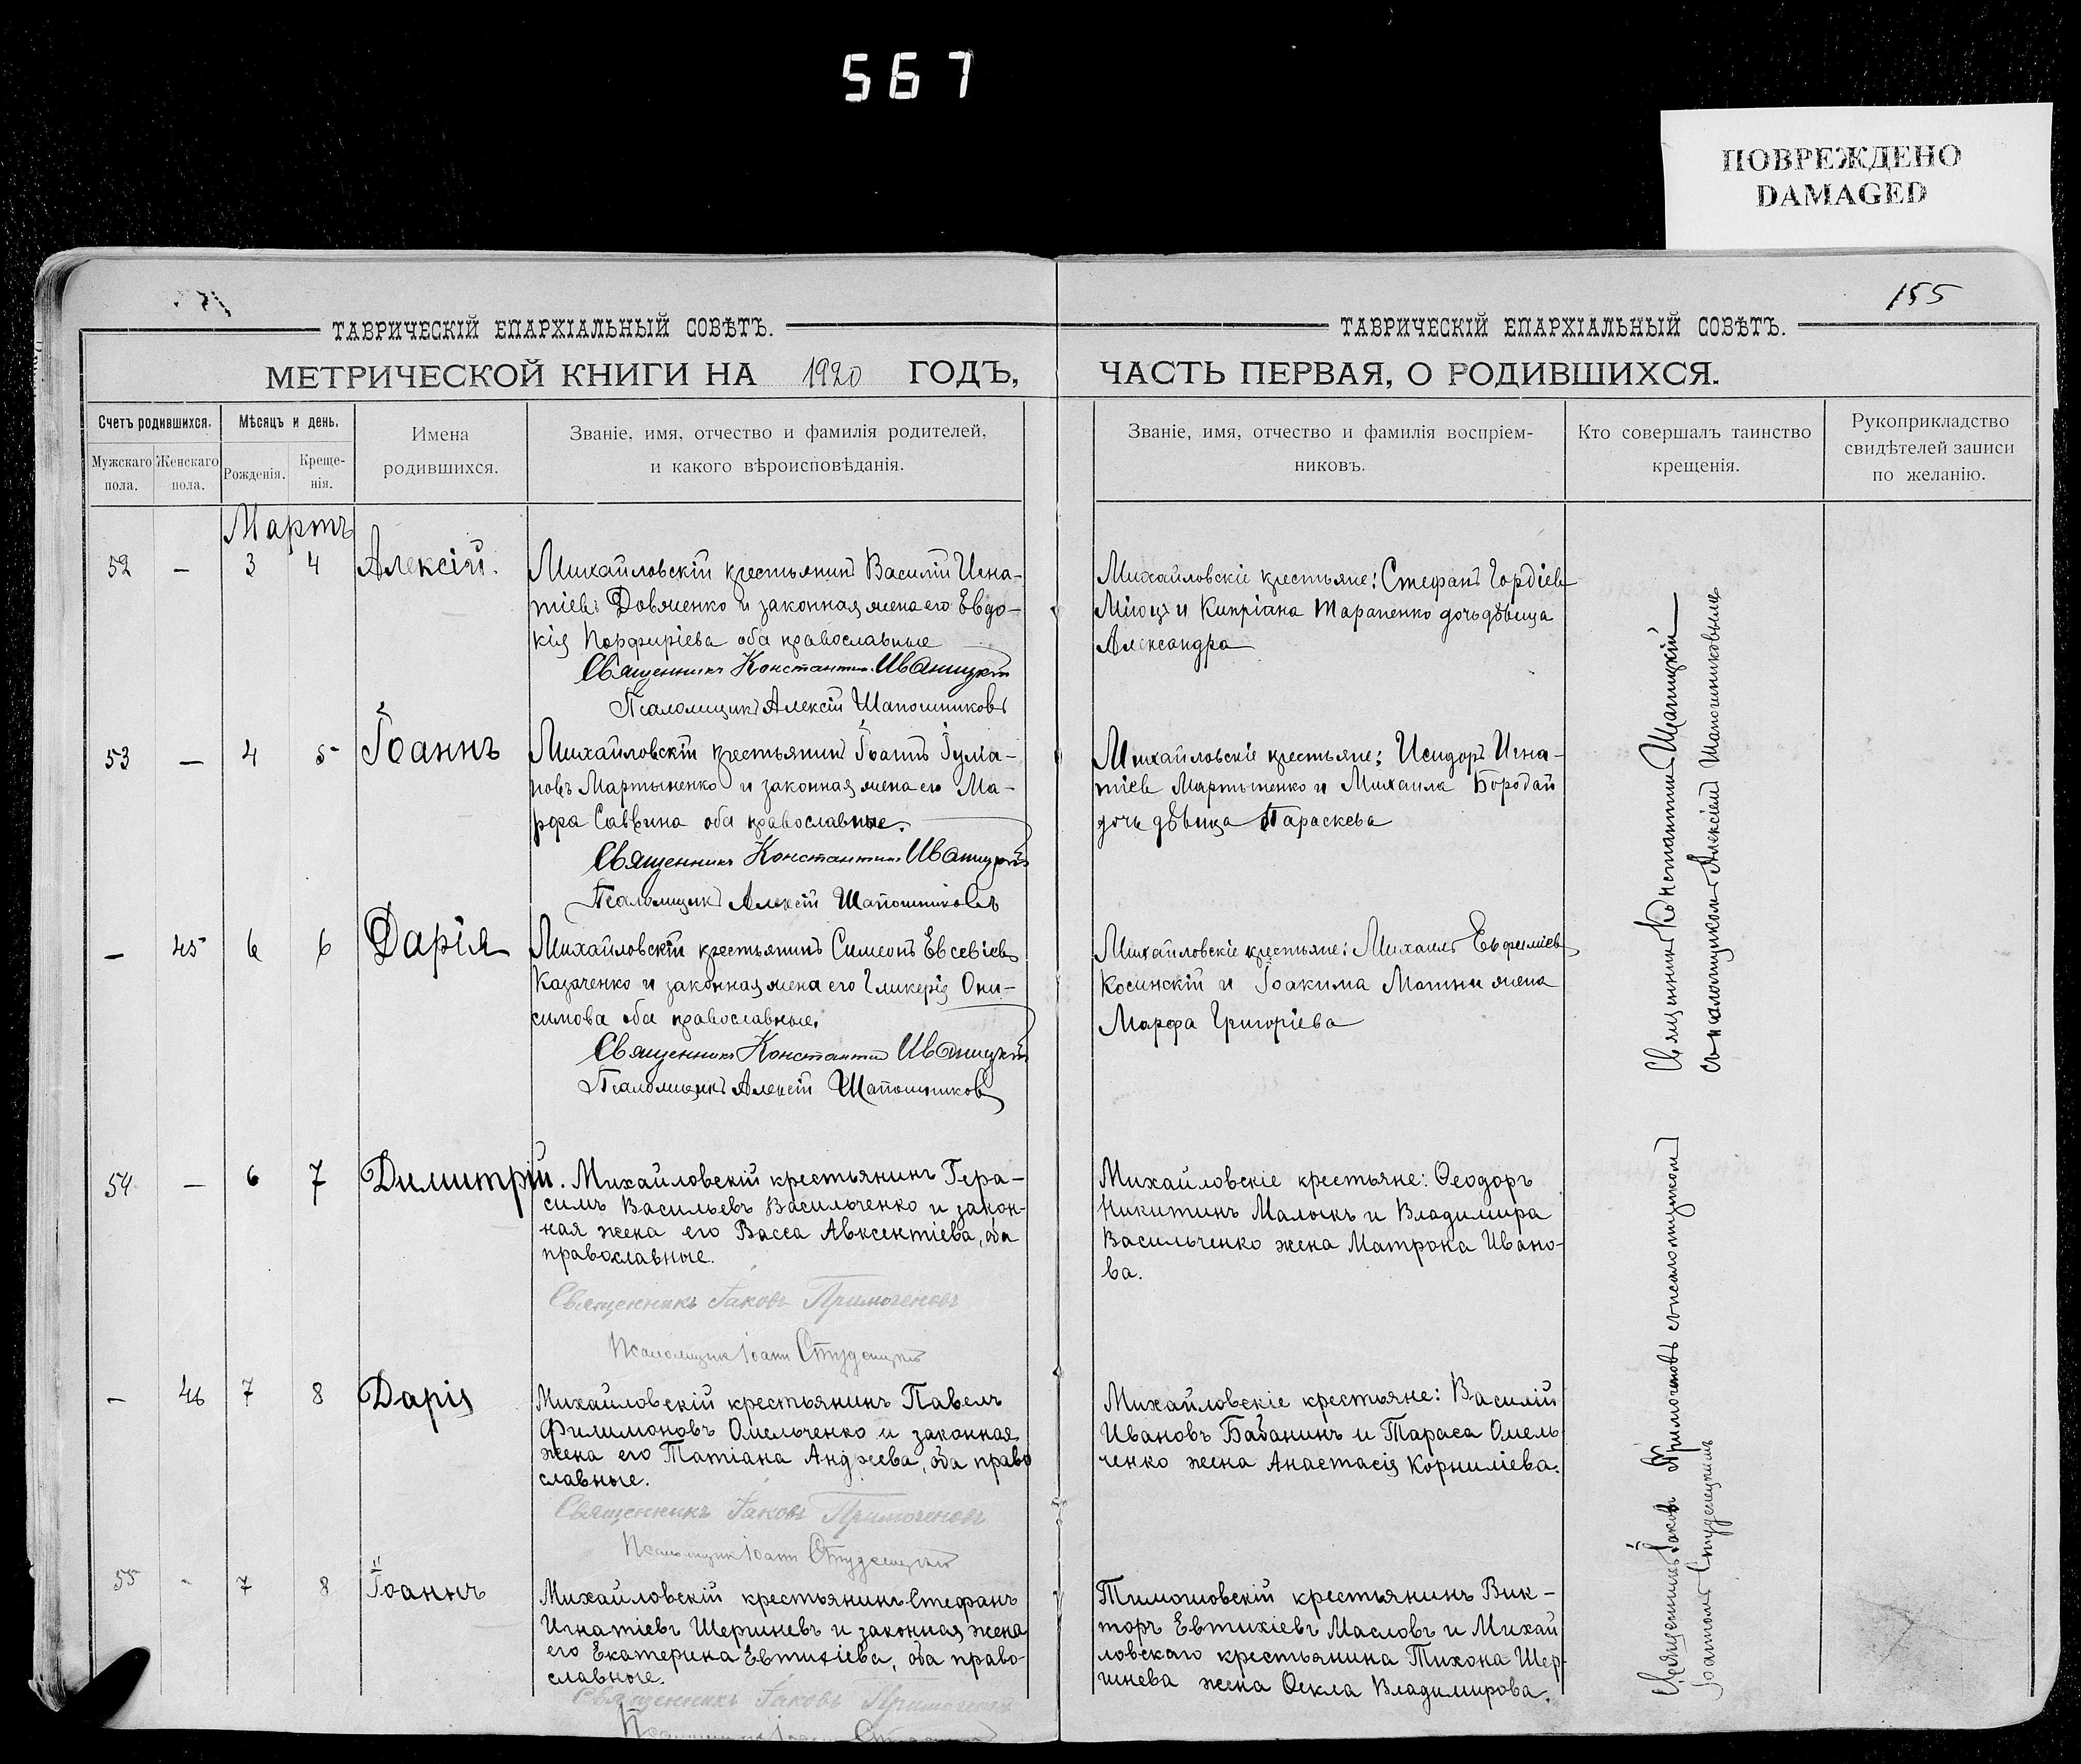 567
ПОВРЕЖДЕНО
DAMAGED
155
ТАВРИЧЕСКІЙ ЕПАРХІАЛЬНЫЙ СОВѢТЪ.
ТАВРИЧЕСКІЙ ЕПАРХІАЛЬНЫЙ СОВѢТЪ.
МЕТРИЧЕСКОЙ КНИГИ НА 1920 ГОДЪ,
ЧАСТЬ ПЕРВАЯ, О РОДИВШИХСЯ.
Счетъ родившихся.
Мужскаго пола.
Женскаго пола.
Мѣсяцъ и день.
Рожденія.
Креще-
нія.
Имена
родившихся.
Званіе, имя, отчество и фамилія родителей,
и какого вѣроисповѣданія.
Званіе, имя, отчество и фамилія воспріем-
никовъ.
Кто совершалъ таинство
крещенія.
Рукоприкладство
свидѣтелей записи
по желанію.
Мартъ
52 — 3 4 Алексій.
Михайловскій крестьянинъ Василій Игна-
тіевъ Довженко и законная жена его Евдо-
кія Порфиріева оба православные
Священникъ Константинъ Иваницкій
Псаломщикъ Алексій Шапошниковъ
Михайловскіе крестьяне: Стефанъ Гордіев
и Кипріана Тараненко дочь дѣвица
Александра
53 — 4 5 Іоаннъ
Михайловскій крестьянинъ Іоаннъ
Мартыненко и законная жена его Ма-
рфа Саввина оба православные.
Священникъ Константинъ Иваницкій
Псаломщикъ Алексій Шапошниковъ
Михайловскіе крестьяне: Исидоръ Игна-
тіев Мартыненко и Михаила Бородай
дочь дѣвица Параскева
— 45 6 6 Дарія
Михайловскій крестьянинъ Симеонъ Евсевіевъ
Казаченко и законная жена его Гликерія Они-
симова оба православные.
Священникъ Константинъ Иваницкій
Псаломщикъ Алексій Шапошниковъ
Михайловскіе крестьяне: Михаилъ Евфиміевъ
Косинскій и Іоакима жена
Марфа Григоріева
Священникъ Константинъ Иваницкій
съ псаломщикомъ Алексіемъ Шапошниковымъ
54 — 6 7 Димитрій.
Михайловскій крестьянинъ Гера-
симъ Васильевъ Васильченко и закон-
ная жена его Васса Авксентіева, оба
православные.
Священникъ Іаковъ Примогеновъ
Псаломщик Іоанн Студеницкій
Михайловскіе крестьяне: Ѳеодоръ
Никитинъ Малыкъ и Владимира
Васильченко жена Матрона Ивано-
ва.
— 46 7 8 Дарія
Михайловскій крестьянинъ Павелъ
Филимоновъ Омельченко и законная
жена его Татіана Андреева, оба право
славные.
Священникъ Іаковъ Примогеновъ
Псаломщик Іоанн Студеницкій
Михайловскіе крестьяне: Василій
Ивановъ Бабанинъ и Тараса Омель
ченко жена Анастасія Корниліева.
55 - 7 8 Іоаннъ
Михайловскій крестьянинъ Стефанъ
Игнатіевъ Шершневъ и законная жена
его Екатерина Евтихіева, оба право-
славные.
Священникъ Іаковъ Примогеновъ
Тимошовскій крестьянинъ Вик-
торъ Евтихіевъ Масловъ и Михай
ловскаго крестьянина Тихона Шер-
шнева жена Ѳекла Владимирова.
Священникъ Іаковъ Примогеновъ съ псаломщикомъ
Іоанномъ Студеницкимъ